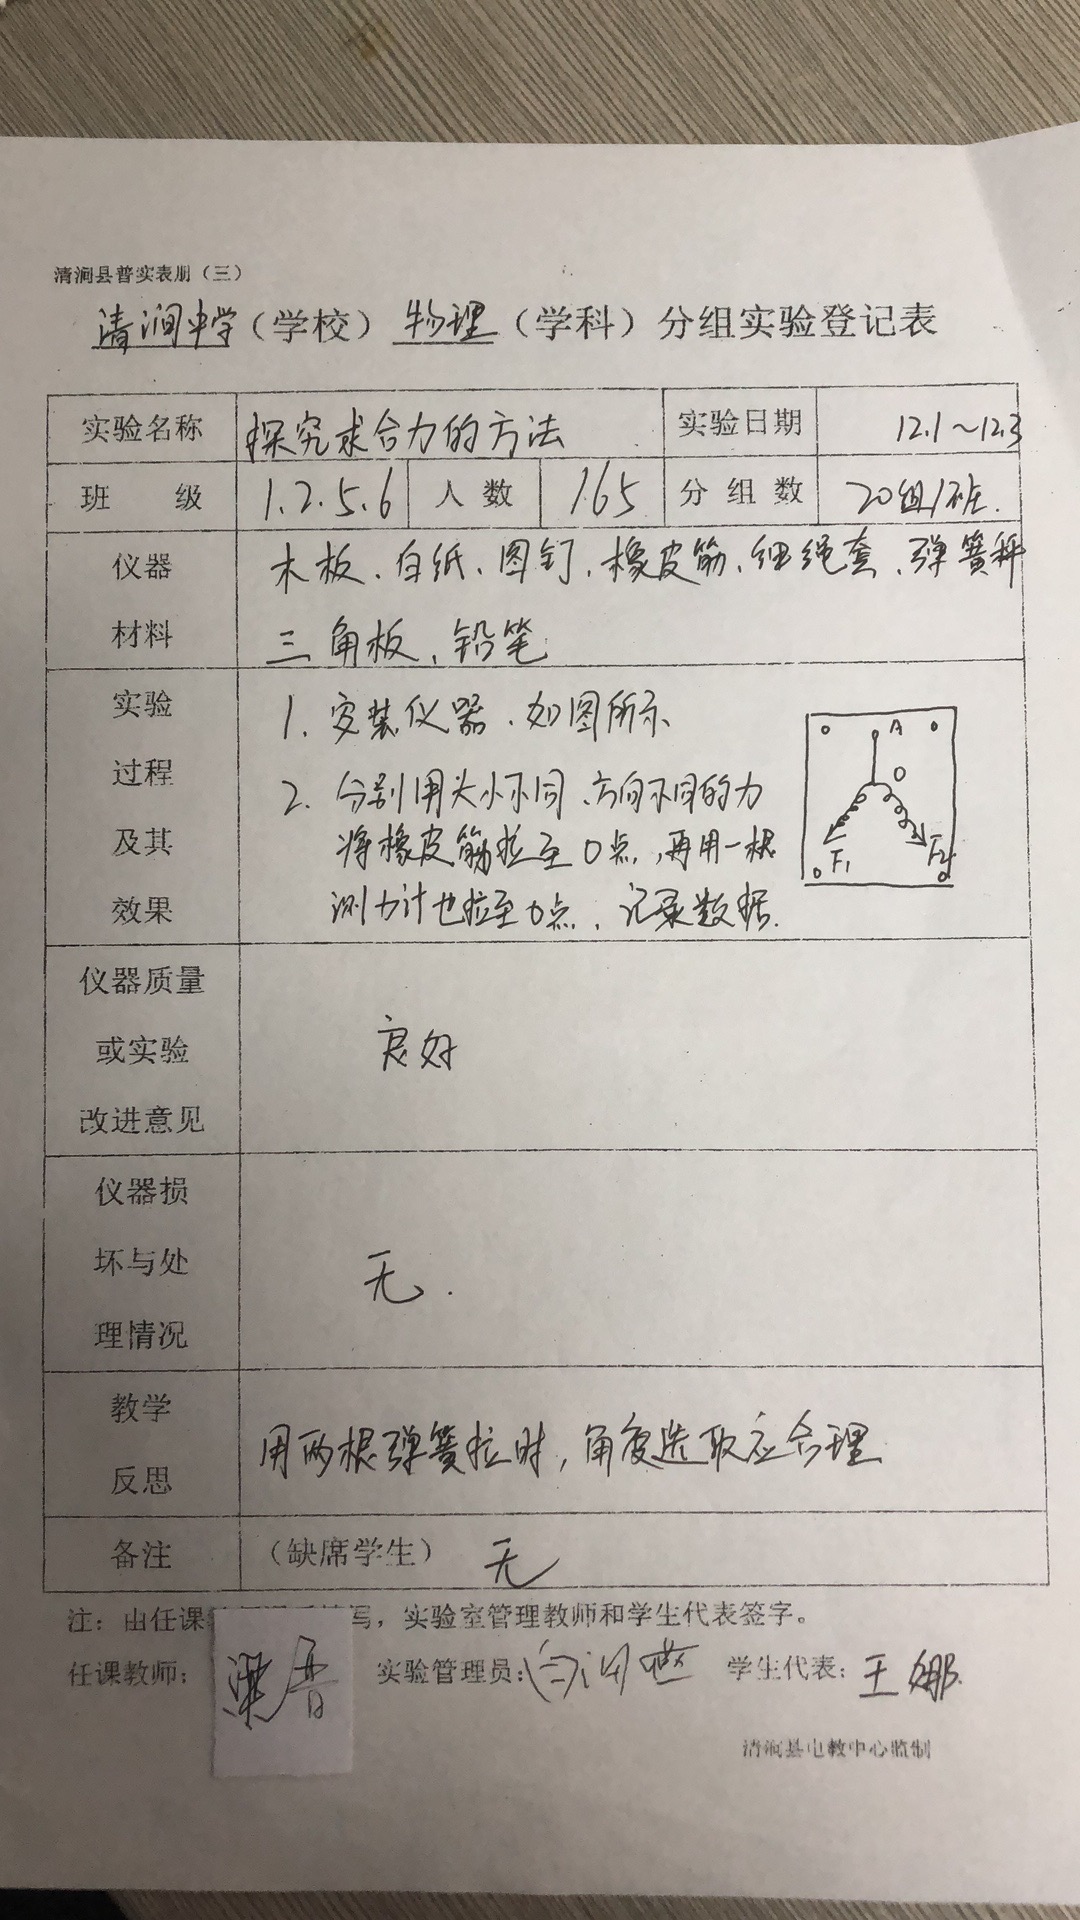 清涧县普实表册（三）
清涧中学（学校）物理（学科）分组实验登记表
实验名称 探究求合力的方法 实验日期 12.1～12.3
班级 1.2.5.6 人数 165 分组数 20组/班.
仪器材料 木板、白纸、图钉、橡皮筋、细绳套、弹簧秤
三角板、铅笔
实验过程及其效果 1. 安装仪器、如图所示
2. 分别用大小不同、方向不同的力
将橡皮筋拉至O点,再用一根
测力计也拉至O点、记录数据.
A
O
F₁ F₂
仪器质量或实验改进意见 良好
仪器损坏与处理情况 无.
教学反思 用两根弹簧拉时,角度选取应合理
备注 （缺席学生） 无
注：由任课 写，实验室管理教师和学生代表签字。
任课教师： 实验管理员： 白 学生代表：王娜
清涧县电教中心监制